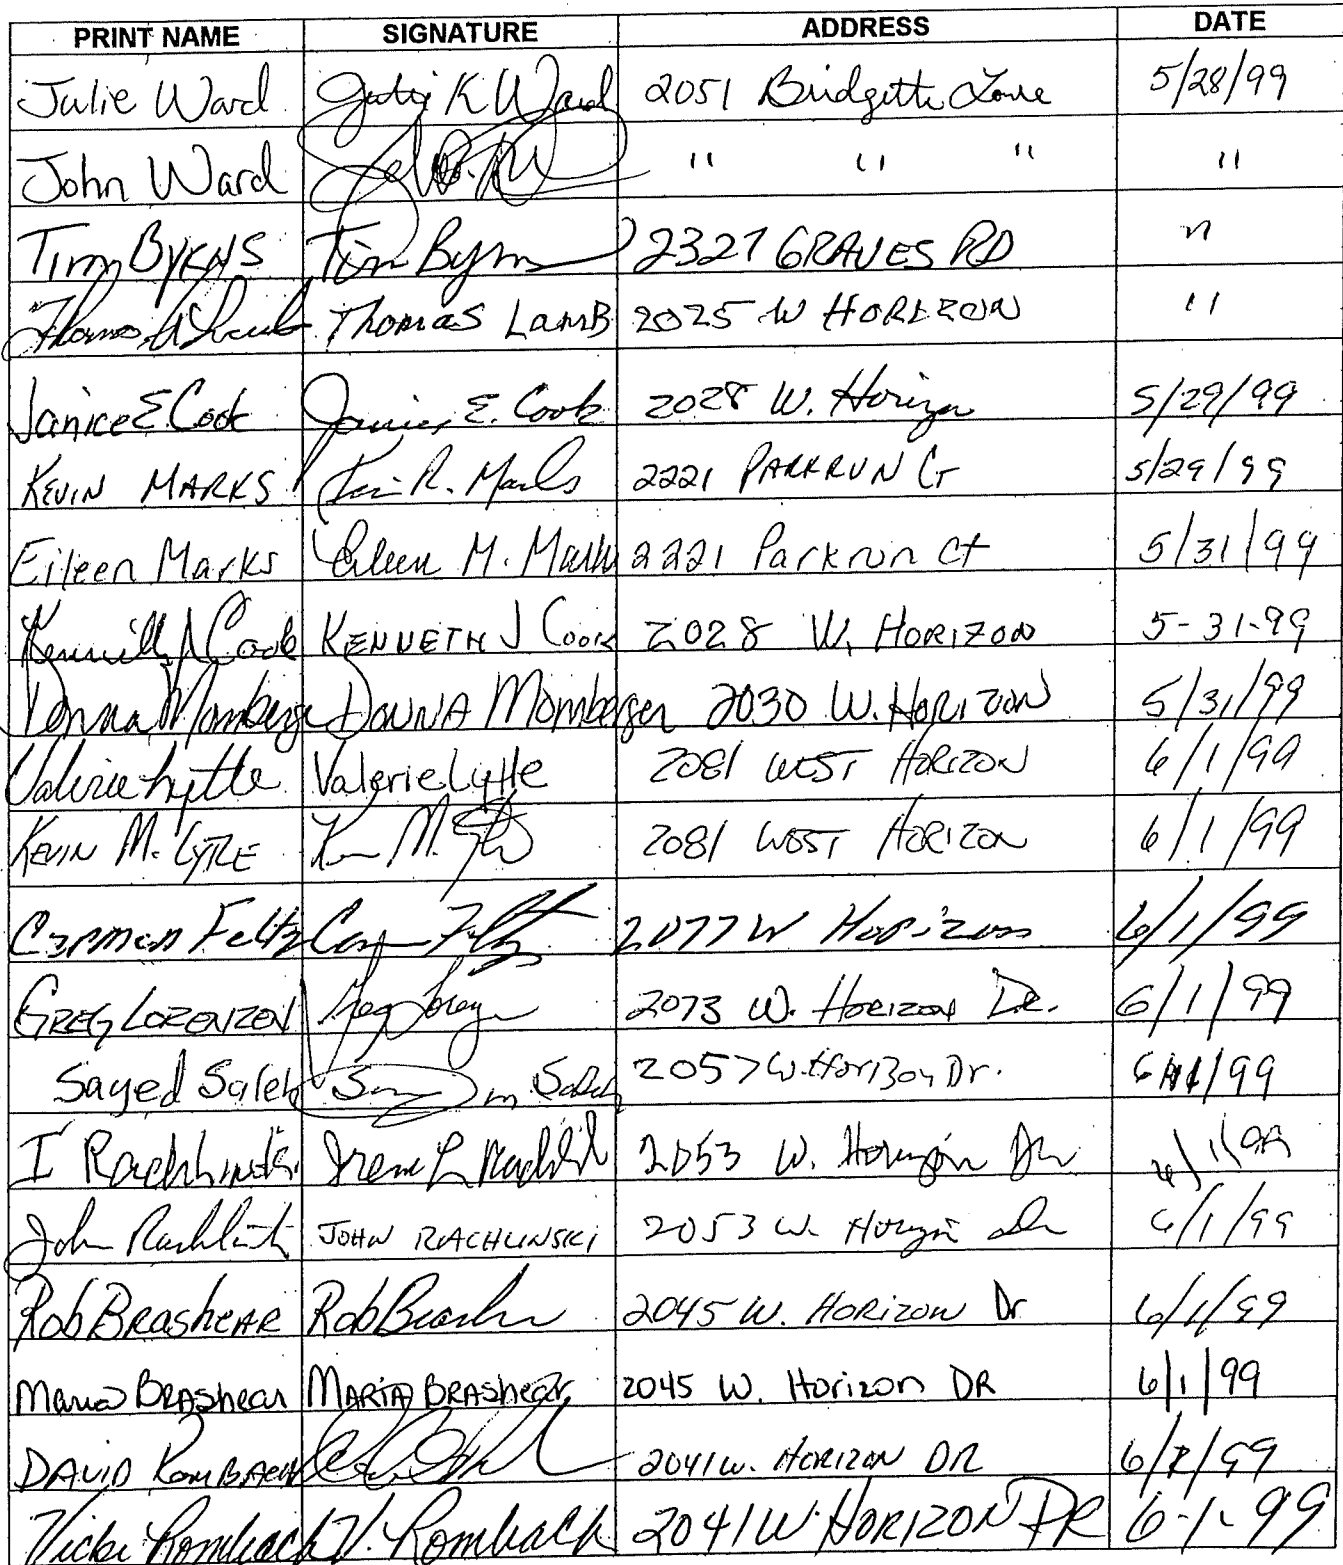 PRINT NAME SIGNATURE ADDRESS DATE
Julie Ward Julie K Ward 2051 Bridgette Lane 5/28/99
John Ward " " " "
Tim BYRNS Tim Byrns 2327 GRAVES RD "
Thomas Lamb THOMAS LAMB 2025 W HORIZON "
Janice E. Cook Janice E. Cook 2028 W. Horizon 5/29/99
KEVIN MARKS Kevin R. Marks 2221 PARKRUN CT 5/29/99
Eileen Marks Eileen M. Marks 2221 Parkrun Ct 5/31/99
Kenneth J Cook KENNETH J COOK 2028 W. HORIZON 5-31-99
Donna Momberger DONNA Momberger 2030 W. HORIZON 5/31/99
Valerie Lytle Valerie Lytle 2081 WEST HORIZON 6/1/99
KEVIN M. LYTLE Kevin M. 2081 WEST HORIZON 6/1/99
Carmen Feltz Carmen Feltz 2077 W Horizon 6/1/99
GREG LORENZEN Greg Lorenzen 2073 W. HORIZON DR. 6/1/99
Sayed Saleh Saleh 2057 W. Horizon Dr. 6/1/99
I Rachlinski Irene L Rachlinski 2053 W. Horizon Dr 6/1/99
John Rachlinski JOHN RACHLINSKI 2053 W. Horizon Dr 6/1/99
Rob BRASHEAR Rob Brashear 2045 W. HORIZON Dr 6/1/99
Maria BRAShear MARIA BRAShear 2045 W. Horizon DR 6/1/99
DAVID ROMBACH 2041 W. HORIZON DR 6/1/99
Vicki Rombach V. Rombach 2041 W HORIZON DR 6-1-99